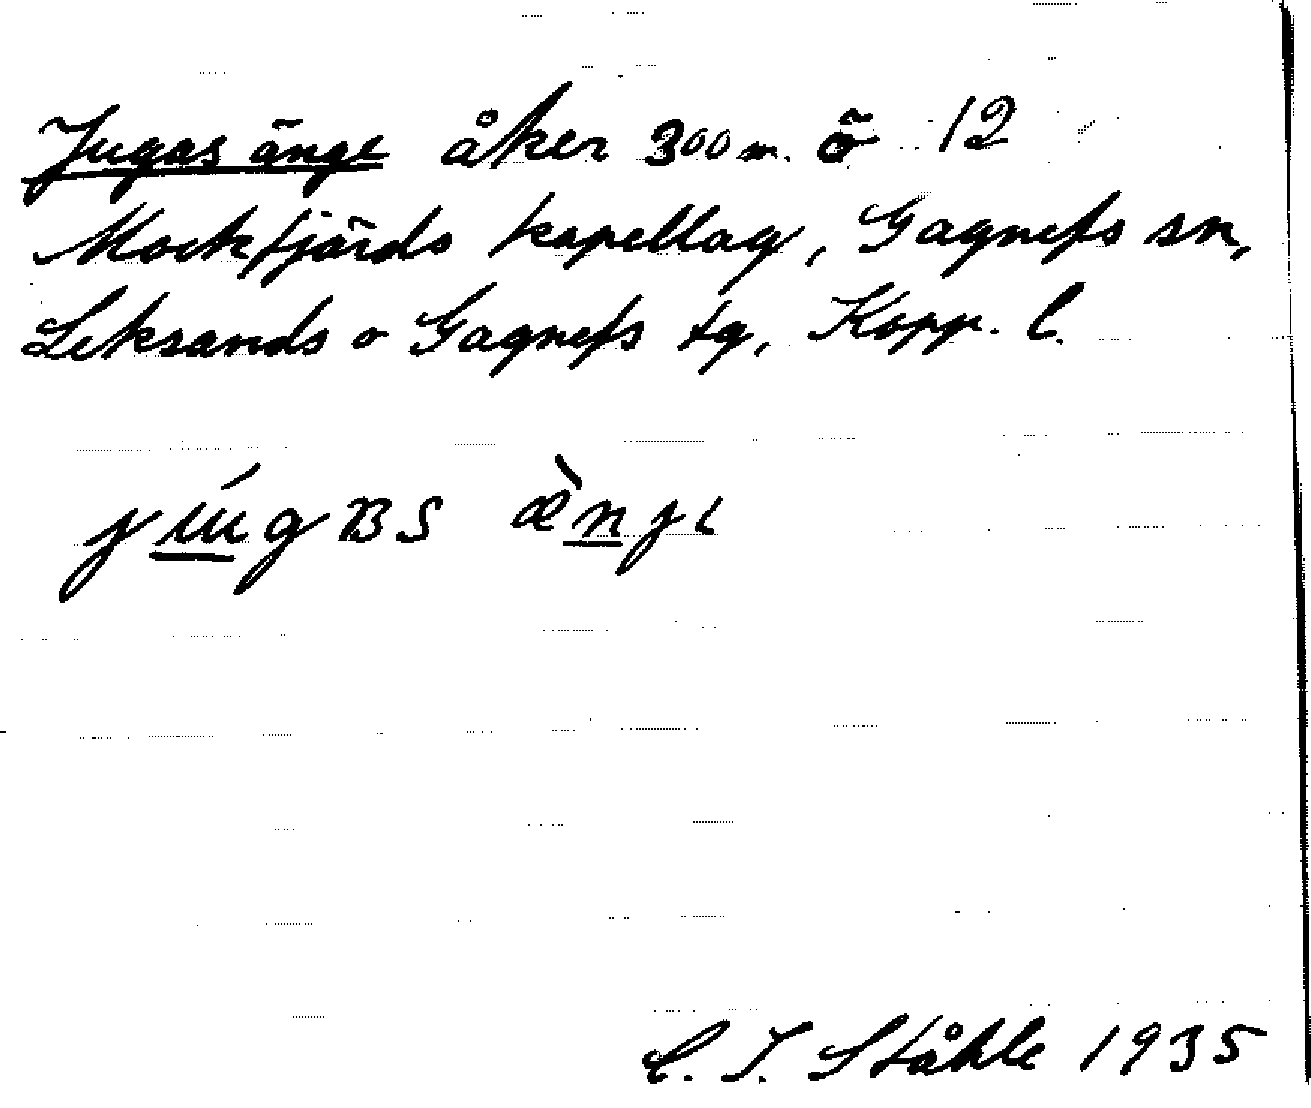 Jugas änge åker 300 m. ö 12
Mockfjärds kapellag, Gagnefs sn,
Leksands o Gagnefs tg, Kopp. l.
C. I. Ståhle 1935